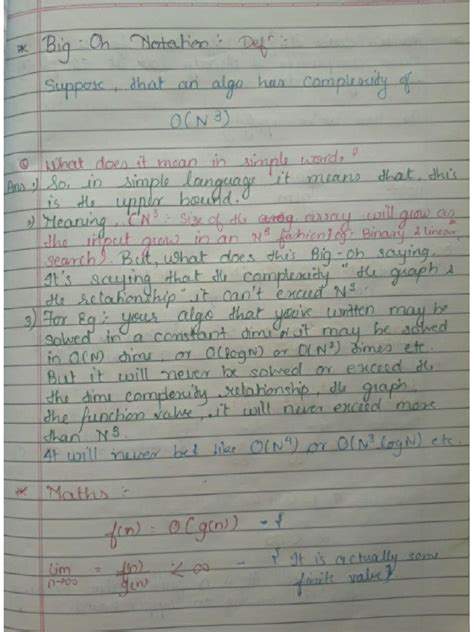 * Big-Oh Notation :- Defⁿ :-
Suppose, that an algo has complexity of
O(N³)
Q What does it mean in simple words?
Ans 1) So, in simple language it means that, this
is the upper bound.
2) Meaning, (N³ :- Size of the array will grow as
the input grow in an N³ fashion) eg:- Binary & linear
search. But, what does this Big-Oh saying.
It's saying that the complexity "the graph &
the relationship" it can't exceed N³.
3) For Eg:- your algo that you've written may be
solved in a constant time it may be solved
in O(N) time, or O(logN) or O(N²) times etc.
But it will never be solved or exceed the
the time complexity, relationship, the graph,
the function value, it will never exceed more
than N³.
It will never be like O(N⁴) or O(N³ logN) etc.
* Maths :-
f(n) = O(g(n)) -
lim n→∞ = f(n)/g(n) < ∞ - { It is actually some
finite value }